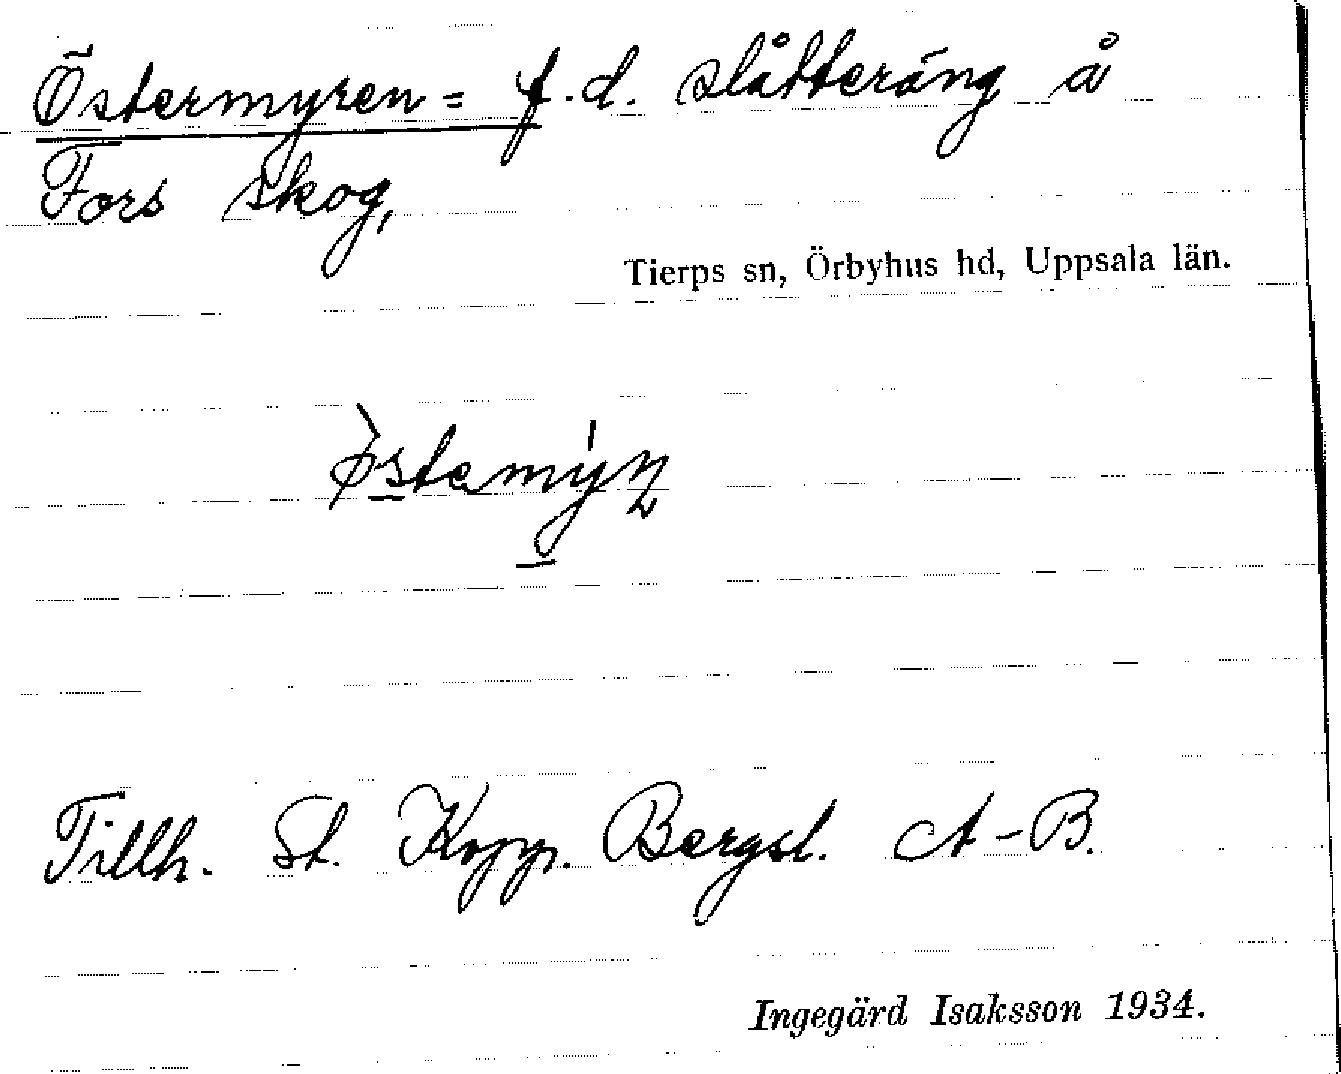 Östermyren = f.d. slåtteräng å
Fors skog,
Tierps sn, Örbyhus hd, Uppsala län.
ø̀stemýn̥
Tillh. St. Kopp. Bergsl. A-B.
Ingegärd Isaksson 1934.